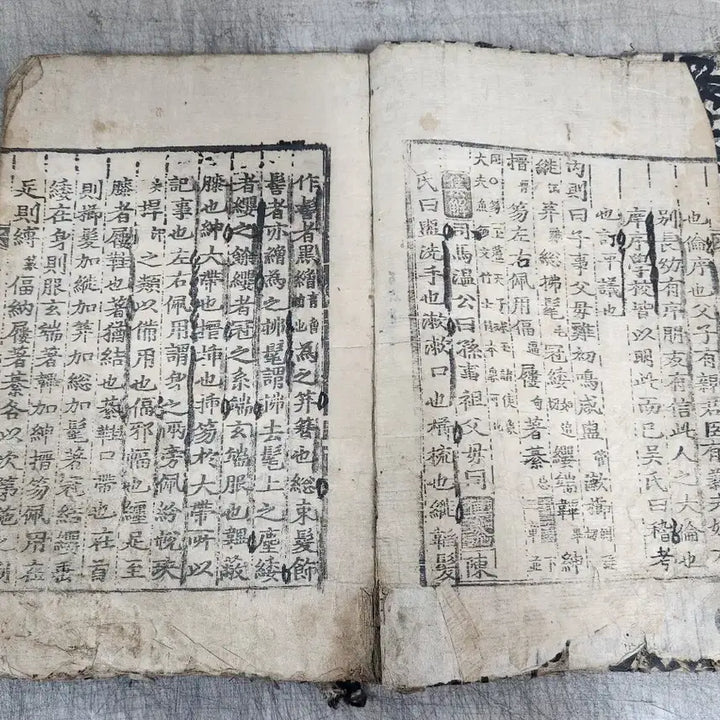 也倫序也父子有親君臣有義夫婦
別長幼有序朋友有信此人之大倫也
庠序學校皆以明此而已吳氏曰稽考
也訂平議也
內則曰子事父母雞初鳴咸盥漱櫛
縰笄總拂髦冠緌纓端韠紳
搢笏左右佩用偪屨著綦
司馬溫公曰孫事祖父母同陳
氏曰盥洗手也漱漱口也櫛梳也縰韜髮
作髻者黑繒為之笄簪也總束髮飾
髻者亦繒為之拂髦謂拂去髦上之塵緌
者纓之餘纓者冠之系端玄端服也韠蔽
膝也紳大帶也搢揷也揷笏於大帶所以
記事也左右佩用謂身之兩旁佩紛帨玦
捍之類以備用也偪邪幅也纏足至
膝者屨鞋也著猶結也綦鞋口帶也在首
則櫛髮加縰加笄加總加髦著冠結纓垂
緌在身則服玄端著韠加紳搢笏佩用在
足則縛偪納屨著綦各以次第施之